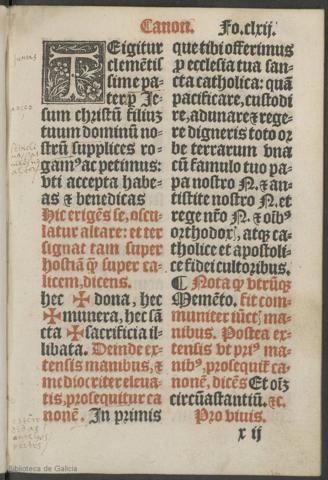 Canon. Fo.clxij.
TE igitur
clemētis
sime pa-
ter:ꝑ Je-
sum christū filiuʒ
tuum dominū no-
strū supplices ro-
gamꝰ ac petimus:
vti accepta habe-
as ⁊ benedicas
Hic erigēs se, oscu
latur altare: et ter
signat tam super
hostiā q̄ꝫ super ca-
licem, dicens.
hec ✠ dona, hec
✠munera, hec sā
cta ✠sacrificia il-
libata. Deinde ex-
tensis manibus, ⁊
mediocriter eleua-
tis, prosequitur ca
nonē. In primis
que tibi offerimus
ꝓ ecclesia tua san-
cta catholica: quā
pacificare, custodi
re, adunare ⁊ rege-
re digneris toto or
be terrarum vna
cū famulo tuo pa-
pa nostro N. ⁊ an-
tistite nostro N. et
rege nr̄o N. ⁊ oībꝰ
orthodoxꝭ, atqꝫ ca-
tholice et apostoli-
ce fidei cultoribus.
¶ Nota q̄ vtrūqꝫ
Memēto. fit com-
muniter iūctꝭ ma-
nibus. Postea ex-
tensis vt priꝰ ma-
nibꝰ, prosequit̄ ca-
nonē, dicēs Et oīʒ
circūastantiū. ⁊c.
Pro viuis.
x ij
Biblioteca de Galicia